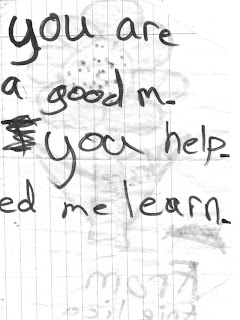 you are
a good m_
you help_
ed me learn_